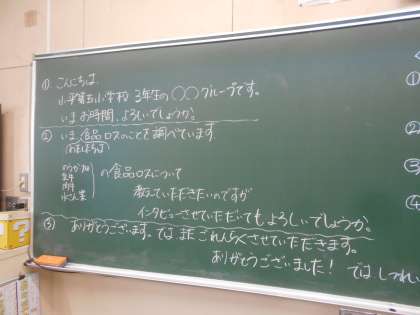 ① こんにちは。
小学校 3年生の〇〇グループです。
いま お時間、よろしいでしょうか。
② いま、食品ロスのことを調べています。
の食品ロスについて
教えていただきたいのですが
インタビューさせていただいてもよろしいでしょうか。
③ ありがとうございます。では またごれんらくさせていただきます。
ありがとうございました! では しつれい
①
②
③
④
?